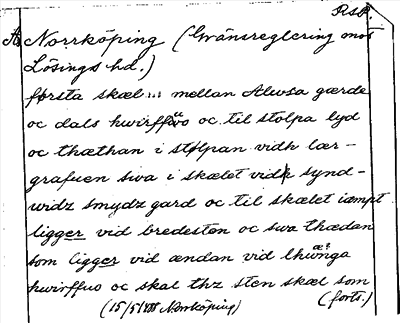 RSP.
Ä Norrköping (Gränsreglering mot
Lösings hd.)
første skæl... mellan Alwsa gærde
oc dals hwirffwo oc til stolpa lyd
oc thæthan i stølpan vidh lær-
grafuen swa i skælet vidh synd-
widz smydz gard oc til skælet iæmpt
ligger vid bredesten oc swa thædan
som ligger vid ændan vid lhwnga
æ?
hwirffuo oc skal thz sten skæl som
(15/5 Norrköping)
(forts.)